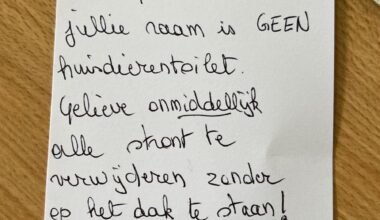 jullie raam is GEEN
huisdierentoilet.
Gelieve onmiddellijk
alle stront te
verwijderen zonder
op het dak te staan!